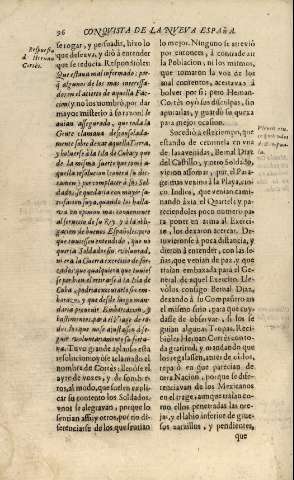 96 CONQUISTA DE LA NUEVA ESPAÑA.
Respuesta
de Hernan
Cortès.
se rogar, y persuadir, hizo lo
que deseava, y diò à entender
que se reducia. Respondioles:
Que estava mal informado; por-
que algunos de los mas interessa-
dos en el acierto de aquella Fac-
cion (y no los nombrò, por dar
mayor misterio à su razon) le
avian assegurado, que toda la
Gente clamava desconsolada-
mente sobre dexar aquella Tierra,
y bolverse à la Isla de Cuba; y que
de la misma suerte que tomò a
quella resolucion contra su dic-
tamen; por complacer à sus Sol-
dados, se quedaria con mayor sa-
tisfaccion suya, quando los halla-
va en opinion mas conveniente
al servicio de su Rey, y à la obli-
gacion de buenos Españoles: pero
que tuviessen entendido, que no
queria Soldados sin voluntad,
ni era la Guerra exercicio de for-
çados: que qualquiera que tuvies-
se por bien el retirarse à la Isla de
Cuba, podria executarlo sin em-
baraço; y que desde luego manda-
ria prevenir Embarcacion, y
bastimentos, para el viage de to-
dos los que no se ajustassen à se-
guir voluntariamente su fortu-
na. Tuvo grande aplauso esta
resolucion: oyòse aclamado el
nombre de Cortès: llenòse el
ayre de voces, y de sombre-
ros, al modo, que suelen expli-
car su contento los Soldados,
vnos se alegravan, porque lo
sentian assi; y otros, por no di-
ferenciarse de los que sentian
lo mejor. Ninguno se atreviò
por entonces, à contradecir
la Poblacion, ni los mismos,
que tomaron la voz de los
mal contentos, acertavan à
bolver por sì; pero Hernan
Cortès oyò sus disculpas, sin
apurarlas, y guardò su quexa
para mejor ocasion.
Sucediò à este tiempo, que
estando de centinela en vna
de las avenidas, Bernal Diaz
del Castillo, y otro Soldado,
vieron assomar, por el Para-
ge mas vezino à la Playa, cin-
co Indios, que venian cami-
nando àzia el Quartel; y pa-
reciendoles poco numero pa-
ra poner en arma al Exerci-
to, los dexaron acercar. De-
tuvieronse à poca distancia, y
dieron à entender, con las se-
ñas, que venian de paz, y que
traian embaxada para el Ge-
neral de aquel Exercito. Lle-
vòlos consigo Bernal Diaz,
dexando à su Compañero en
el mismo sitio, para que cuy-
dasse de observar, si los se-
guian algunas Tropas. Reci-
biòlos Hernan Cortès con to-
da gratitud, y mandando que
los regalassen, antes de oirlos,
reparò en que parecian de
otra Nacion, porque se dife-
renciavan de los Mexicanos
en el trage, aunque traian co-
mo ellos penetradas las ore-
jas, y el labio inferior de grue-
sos zarcillos, y pendientes,
que